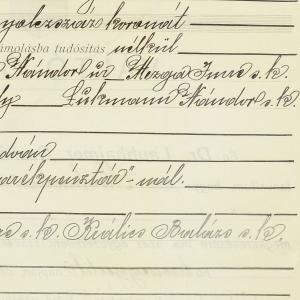 nyolczszáz koronát
ámolásba tudósítás nélkül
Nándor úr Mezga Imre s.k.
Lukmann Nándor s.k.
udvar
arékpénztár"-nál.
s.k. Králics Balázs s.k.